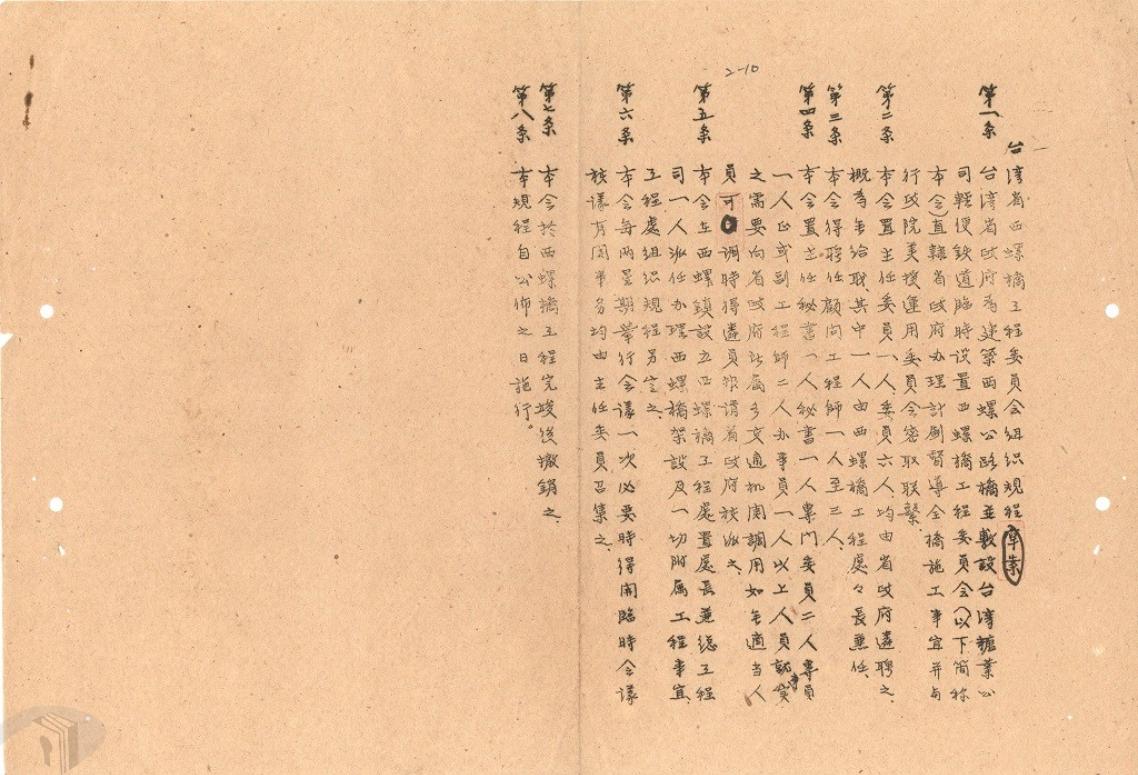 2-10
台湾省西螺橋工程委員会組织規程草案
第一条 台湾省政府為建築西螺公路橋並敷設台湾糖業公
司輕便鉄道臨時設置西螺橋工程委員会(以下简称
本会)直隸省政府办理計劃督導全橋施工事宜并与
行政院美援運用委員会密取联繫
第二条 本会置主任委員一人、委員六人、均由省政府遴聘之、
概為無給職、其中一人由西螺橋工程處々長兼任、
第三条 本会得聘任顧问工程師一人至三人、
第四条 本会置主任秘書一人秘書一人專门委員二人專員
一人正或副工程師二人办事員一人以上人員就事實
之需要向省政府所属各交通机関調用如無適当人
員可調時得遴員報請省政府核派之、
第五条 本会在西螺鎮設立西螺橋工程處置處長兼総工程
司一人派任办理西螺橋架設及一切附属工程事宜、
工程處組织規程另定之、
第六条 本会每兩星期举行会議一次必要時得開臨時会議
核議有関事务均由主任委員召集之、
第七条 本会於西螺橋工程完竣後撤銷之、
第八条 本規程自公佈之日施行。